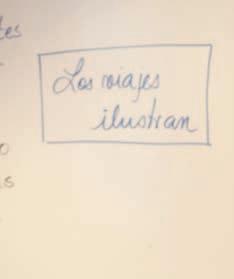 tes
Los viajes
ilustran
o
s